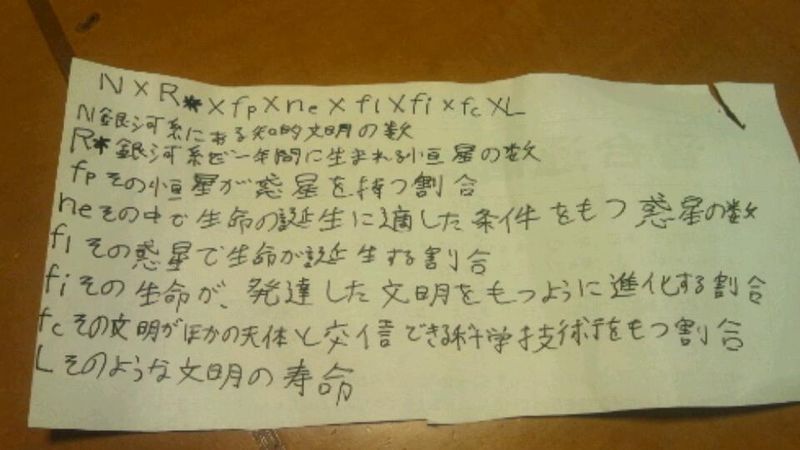 N×R*×fp×ne×fl×fi×fc×L
N銀河系にある知的文明の数
R*銀河系で一年間に生まれる恒星の数
fpその恒星が惑星を持つ割合
neその中で生命の誕生に適した条件をもつ惑星の数
flその惑星で生命が誕生する割合
fiその生命が、発達した文明をもつように進化する割合
fcその文明がほかの天体と交信できる科学技術をもつ割合
Lそのような文明の寿命